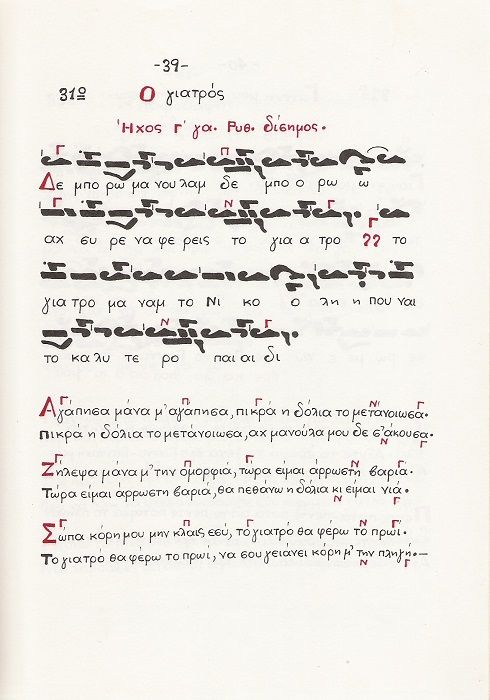 -39-
31ο Ο γιατρός
Ήχος Γ΄ γα. Ρυθ. δίσημος.
Γ Π
Δε μπο ρω μα νου λαμ δε μπο ο ρω ω
Γ Ν Γ Γ
αχ συ ρε να φε ρεις το για α τρο το
για τρο μα ναμ το Νι κο ο λη η που ναι
Ν Γ
το κα λυ τε ρο παι αι δι
Γ Π Γ Ν Γ
Αγάπησα μάνα μ' αγάπησα, πικρά η δόλια το μετάνοιωσα.
Πικρά η δόλια το μετάνοιωσα, αχ μανούλα μου δε σ' άκουσα.
Ν Γ
Γ Π Γ Ν Γ
Ζήλεψα μάνα μ' την ομορφιά, τώρα είμαι άρρωστη βαριά.
Τώρα είμαι άρρωστη βαριά, θα πεθάνω η δόλια κι είμαι νιά.
Ν Γ
Γ Π Γ Ν Γ
Σώπα κόρη μου μην κλαις εσύ, το γιατρό θα φέρω το πρωί.
Το γιατρό θα φέρω το πρωί, να σου γειάνει κόρη μ' την πληγή.—
Ν Γ